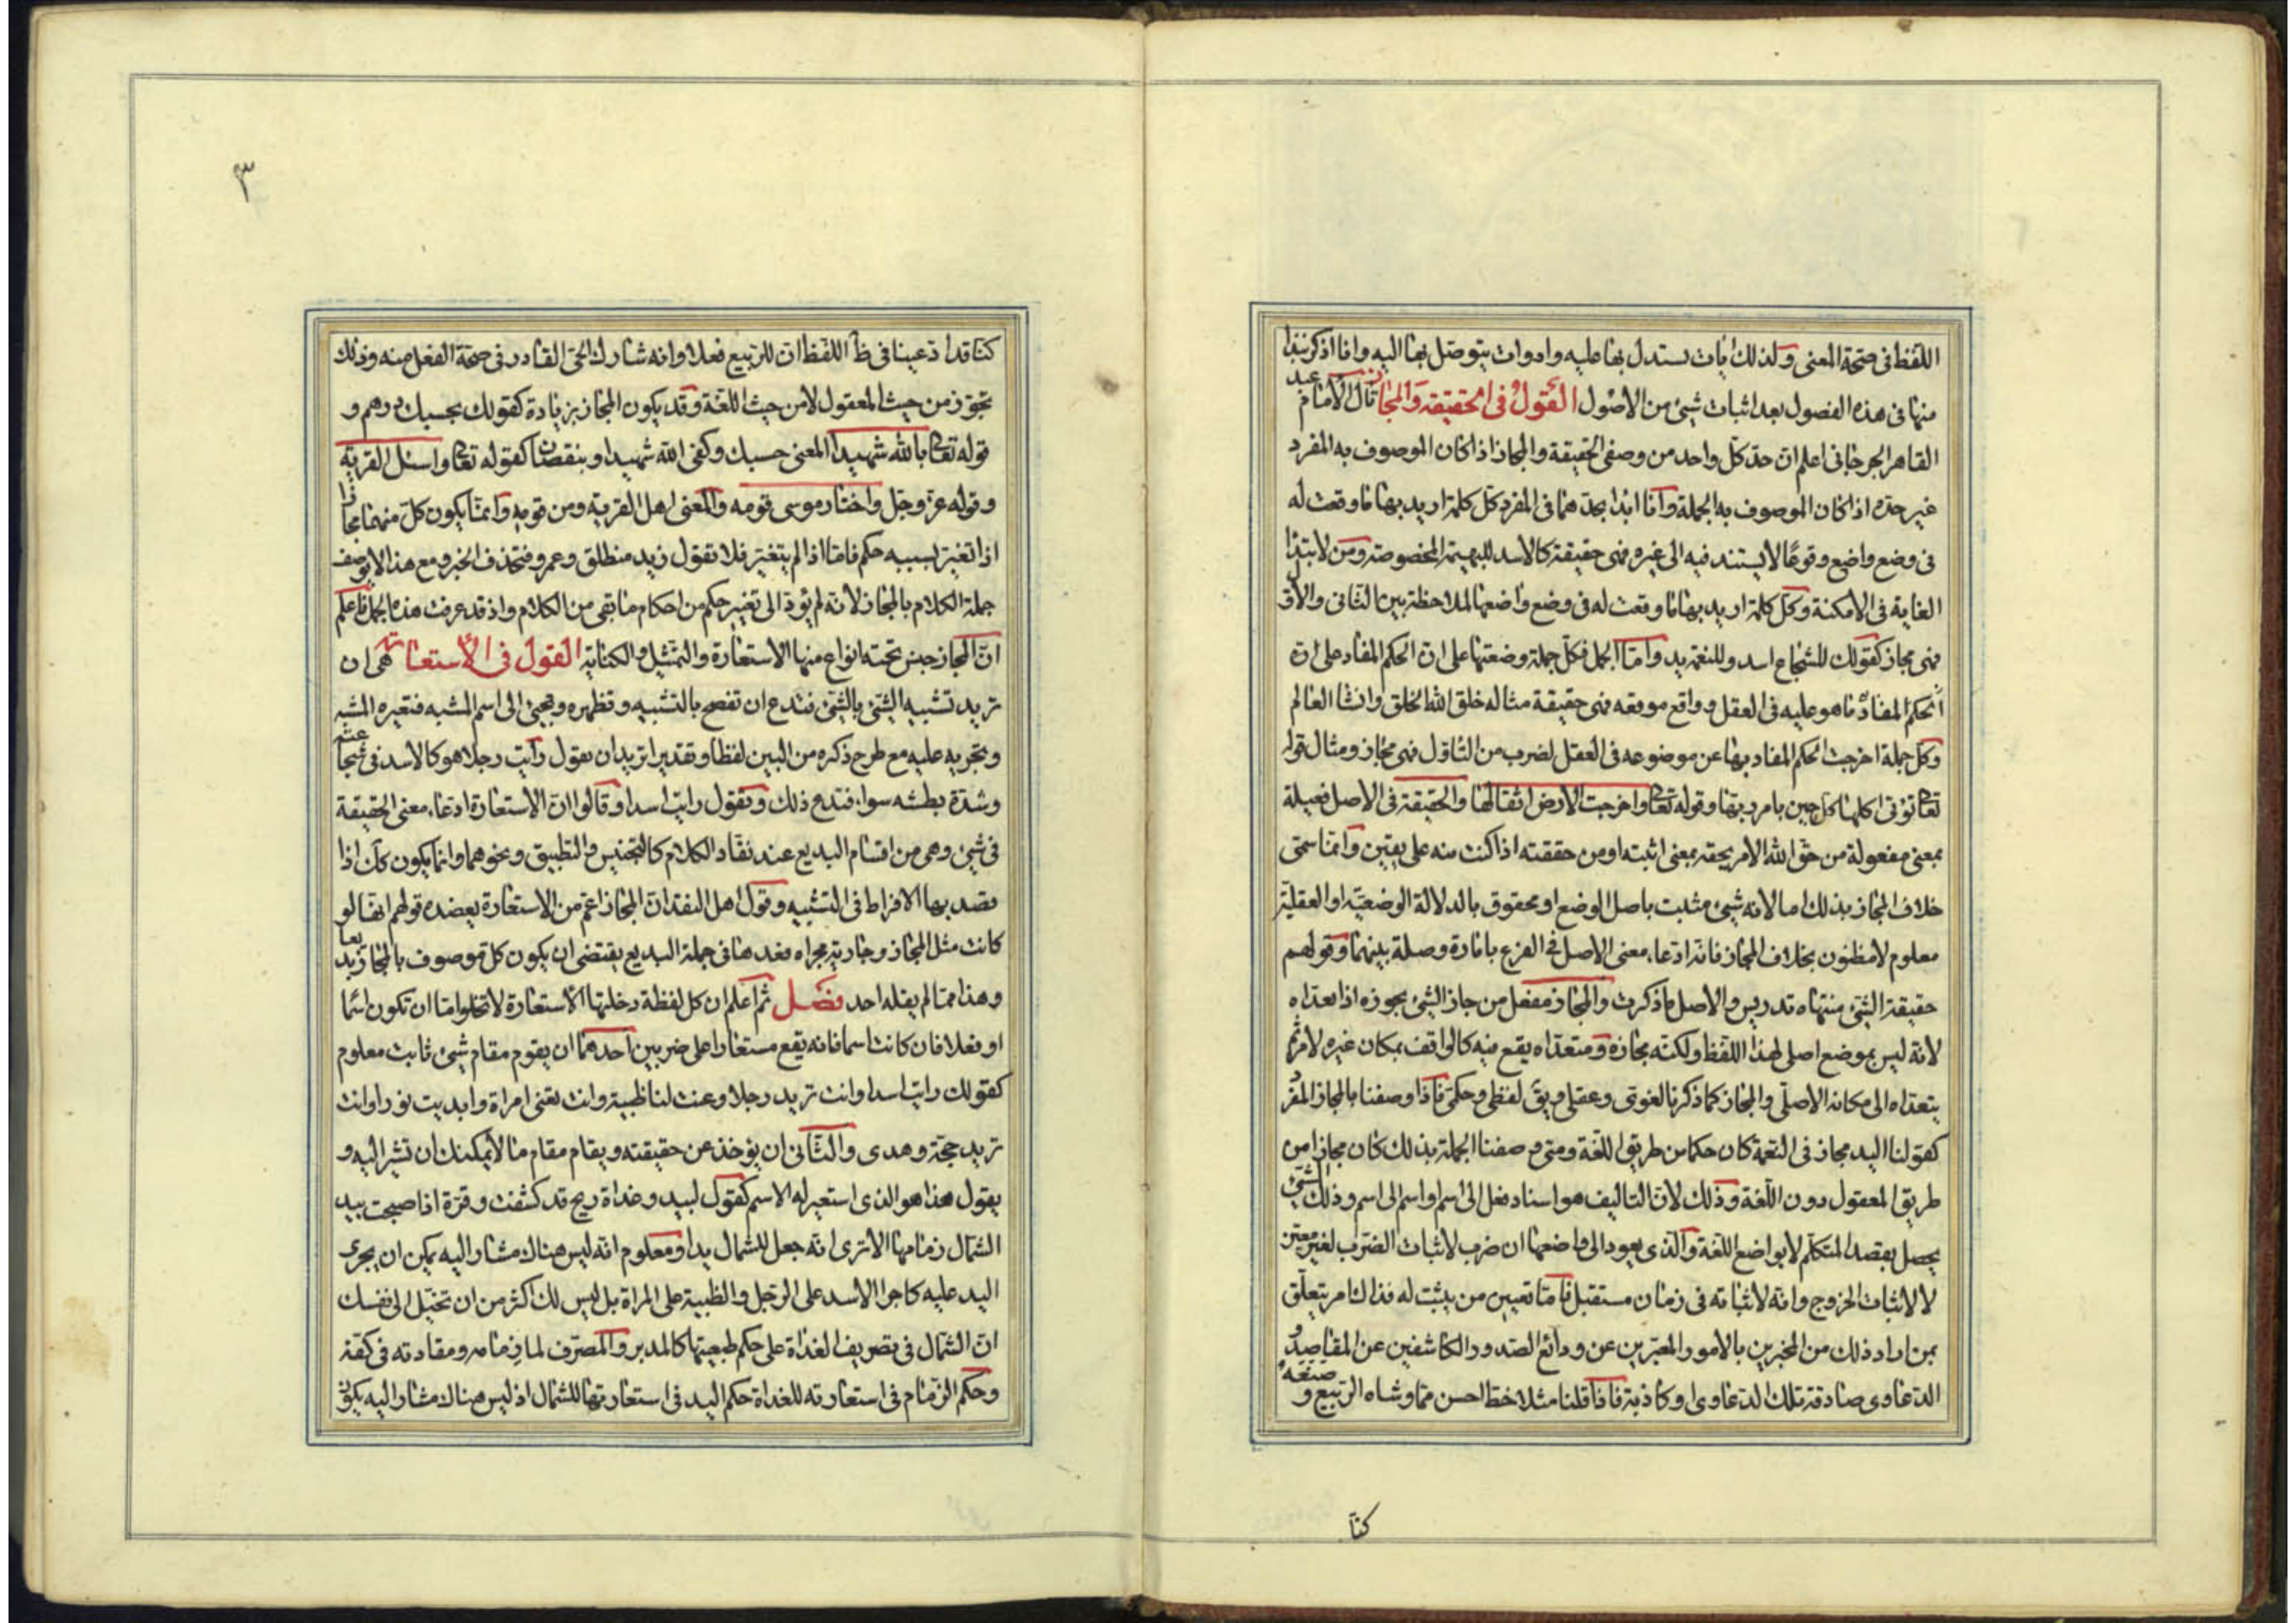 اللفظ فى صحة المعنى ولذلك ايات يستدل بها عليه وادوات يتوصل بها اليه وانا اذكر نبذا
منها فى هذه الفصول بعد اثبات شيئ من الاصول القول فى الحقيقة والمجاز قال الامام عبد
القاهر الجرجانى اعلم ان حد كل واحد من وصفى الحقيقة والمجاز اذا كان الموصوف به المفرد
غير حده اذا كان الموصوف به الجملة وانا ابدا بحدهما فى المفرد كل كلمة اريد بها ما وقعت له
فى وضع واضع وقوعًا لا يستند فيه الى غيره فهى حقيقة كالاسد للبهيمة المخصوصة ومن لابتدا
الغاية فى الامكنة وكل كلمة اريد بها ما وقعت له فى وضع واضعها لملاحظة بين الثانى والاول
فهى مجاز كقولك للشجاع اسد وللنعمة يد واما الجمل فكل جملة وضعتها على ان الحكم المفاد على ان
الحكم المفاد ما هو عليه فى العقل وواقع موقعه فهى حقيقة مثاله خلق الله الخلق وانشا العالم
وكل جملة اخرجت الحكم المفاد بها عن موضوعه فى العقل لضرب من التاول فهى مجاز ومثال قوله
تعا تؤتى اكلها كل حين بامر ربها وقوله تعا واخرجت الارض اثقالها والحقيقة فى الاصل فعيلة
بمعنى مفعولة من حق الله الامر يحقه بمعنى اثبته او من حققته اذا كنت منه على يقين وانما سمى
خلاف المجاز بذلك اما لانه شيئ مثبت باصل الوضع او محقوق بالدلالة الوضعية او العقلية
معلوم لا مظنون بخلاف المجاز فانه ادعاء معنى الاصل فى الفرع بامارة وصلة بينهما وقولهم
حقيقة الشئ منتهاه والاصل ما ذكرت والمجاز مفعل من جاز الشئ يجوزه اذا تعداه
لانه ليس بموضع اصلى لهذا اللفظ ولكنه مجازه ومتعداه يقع فيه كالواقف بمكان غيره لامر ثم
يتعداه الى مكانه الاصلى والمجاز كما ذكرنا لغوى وعقلى ويق لفظى وحكمى فاذا وصفنا بالمجاز المفرد
كقولنا اليد مجاز فى النعمة كان حكما من طريق اللغة ومتى وصفنا الجملة بذلك كان مجازا من
طريق المعقول دون اللغة وذلك لان التاليف هو اسناد فعل الى اسم او اسم الى اسم وذلك الشئ
يحصل بقصد المتكلم لا بواضع اللغة والذى يعود الى واضعها ان ضرب لاثبات الضرب لغير معين
لا لاثبات الخروج وانه لاثباته فى زمان مستقبل فاما تعيين من يثبت له فذلك امر يتعلق
بمن اراد ذلك من المخبرين بالامور المعبرين عن ودائع الصدور الكاشفين عن المقاصد و
الدعاوى صادقة تلك الدعاوى او كاذبة فاذا قلنا مثلا خط احسن مما وشاه الربيع و صنعه
كنا
٣
كنا قد ادعينا فى ظا اللفظ ان للربيع فعلا وانه شارك الحى القادر فى صحة الفعل منه وذلك
تجوز من حيث المعقول لا من حيث اللغة وقد يكون المجاز بزيادة كقولك بحسبك درهم و
قوله تعا بالله شهيدا المعنى حسبك وكفى الله شهيدا وبنقصان كقوله تعا واسئل القرية
وقوله عز وجل واختار موسى قومه والمعنى اهل القرية ومن قومه وانما يكون كل منهما مجازا
اذا تغير بسببه حكم فاما اذا لم يتغير فلا تقول زيد منطلق وعمرو فتحذف الخبر ومع هذا لا يوصف
جملة الكلام بالمجاز لانه لم يؤد الى تغيير حكم من احكام ما بقى من الكلام واذ قد عرفت هذه الجمل فاعلم
ان المجاز جنس تحته انواع منها الاستعارة والتمثيل والكناية القول فى الاستعارة هى ان
تريد تشبيه الشئ بالشئ فتدع ان تفصح بالتشبيه وتظهره وتجئ الى اسم المشبه فتعيره المشبه
وتجريه عليه مع طرح ذكره من البين لفظا وتقديرا تريد ان يقول رأيت رجلا هو كالاسد فى شجاعته
وشدة بطشه سواء فتدع ذلك وتقول رايت اسدا وقالوا ان الاستعارة ادعاء معنى الحقيقة
فى شيئ وهى من اقسام البديع عند نقاد الكلام كالتجنيس والتطبيق ونحوهما وانما يكون كك اذا
قصد بها الافراط فى التشبيه وقول اهل النقد ان المجاز اعم من الاستعارة يعضده قولهم انها لو
كانت مثل المجاز وجارية مجراه فعدها فى جملة البديع يقتضى ان يكون كل موصوف بالمجاز بديعا
وهذا مما لم يقله احد فصل ثم اعلم ان كل لفظة دخلتها الاستعارة لا تخلو اما ان تكون اسما
او فعلا فان كانت اسما فانه يقع مستعارا على ضربين احدهما ان يقوم مقام شيئ ثابت معلوم
كقولك رايت اسدا وانت تريد رجلا وعنت لنا ظبية وانت تعنى امراة وابديت نورا وانت
تريد حجة وهدى والثانى ان يؤخذ عن حقيقته ويقام مقام ما لا يمكنك ان تشير اليه و
يقول هذا هو الذى استعير له الاسم كقول لبيد وغداة ريح قد كشفت وقرة اذا صبحت بيد
الشمال زمامها الا ترى انه جعل للشمال يدا ومعلوم انه ليس هناك مشار اليه يمكن ان يجرى
اليد عليه كاجرا الاسد على الرجل والظبية على المراة بل ليس لك اكثر من ان تخيل الى نفسك
ان الشمال فى تصريف الغداة على حكم طبيعتها كالمدبر والمصرف لما زمامه ومقادته فى كفه
وحكم الزمام فى استعارته للغداة حكم اليد فى استعارتها للشمال اذ ليس هناك مشار اليه يكون